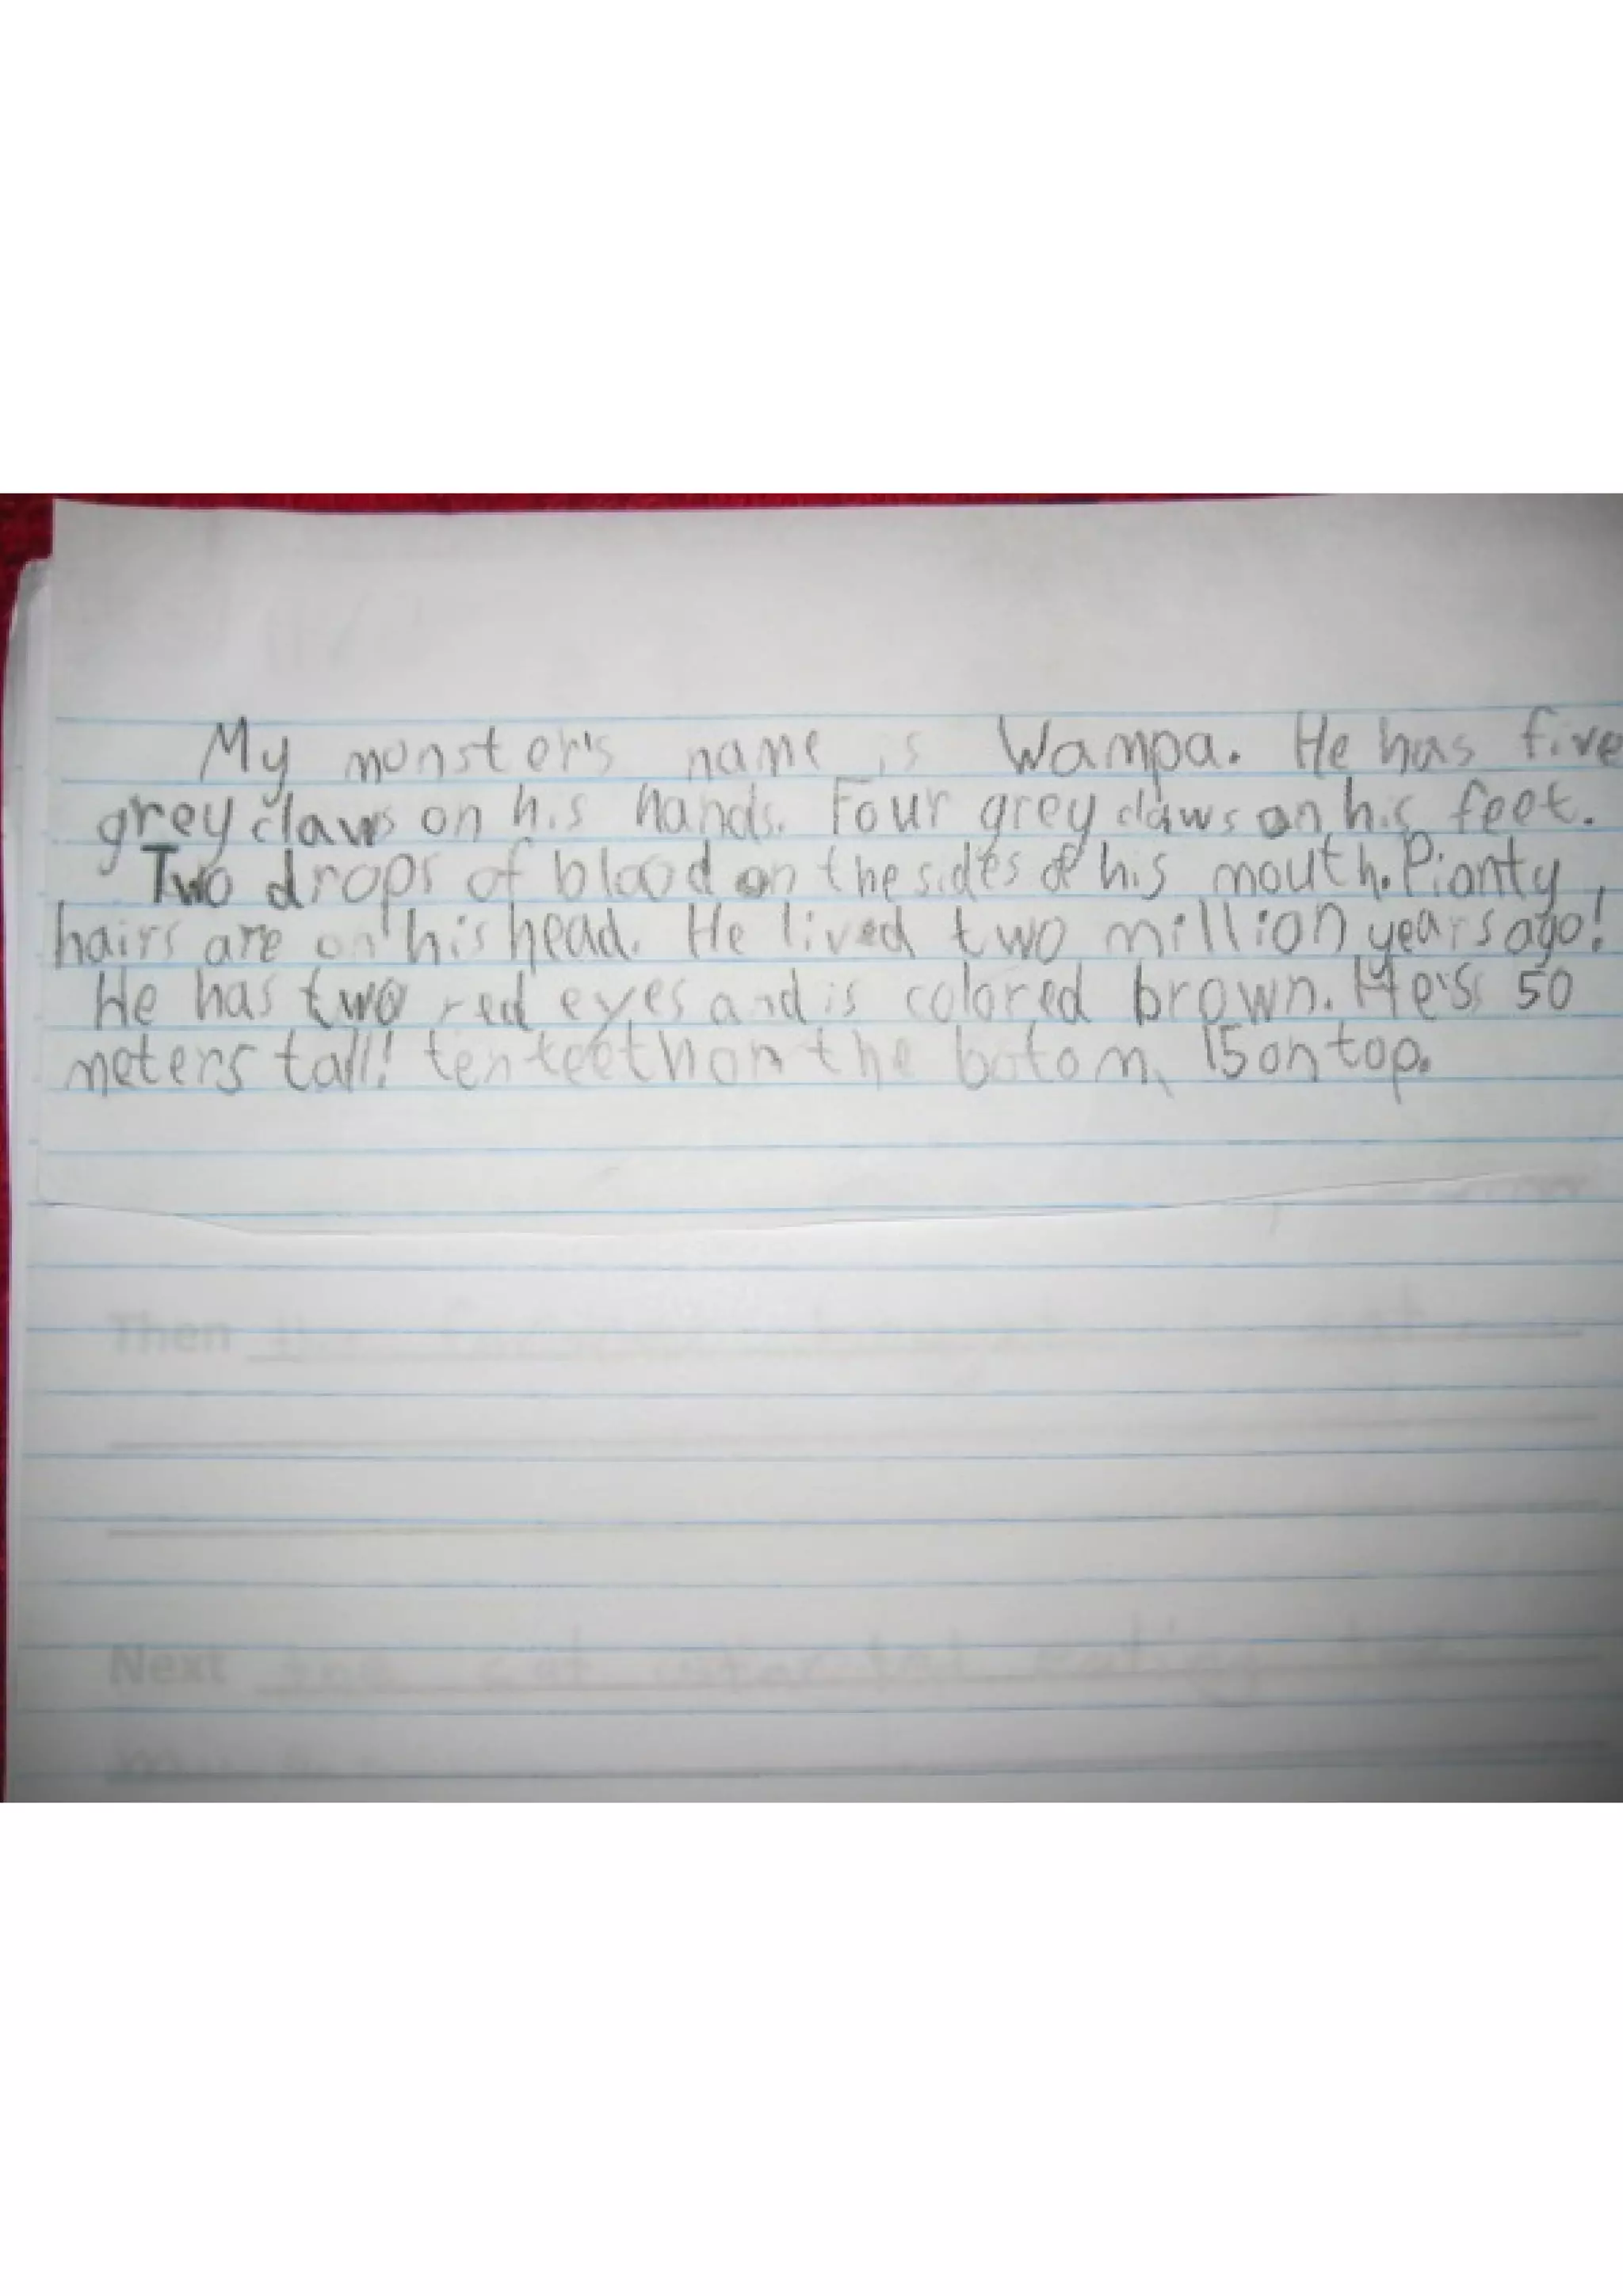 My monster's name is Wampa. He has five
grey claws on his hands. Four grey claws on his feet.
Two drops of blood on the sides of his mouth. Pianty
hairs are on his head. He lived two million years ago!
He has two red eyes and is colored brown. He's 50
meters tall! ten teeth on the botom, 15 on top.
Then
Next the cat